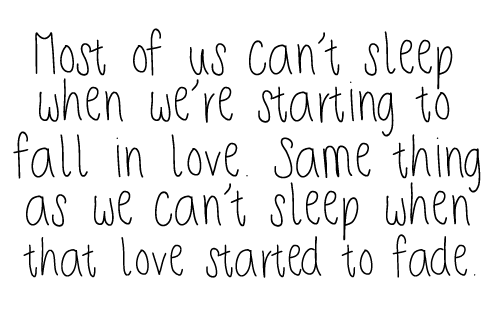 Most of us can't sleep
when we're starting to
fall in love. Same thing
as we can't sleep when
that love started to fade.